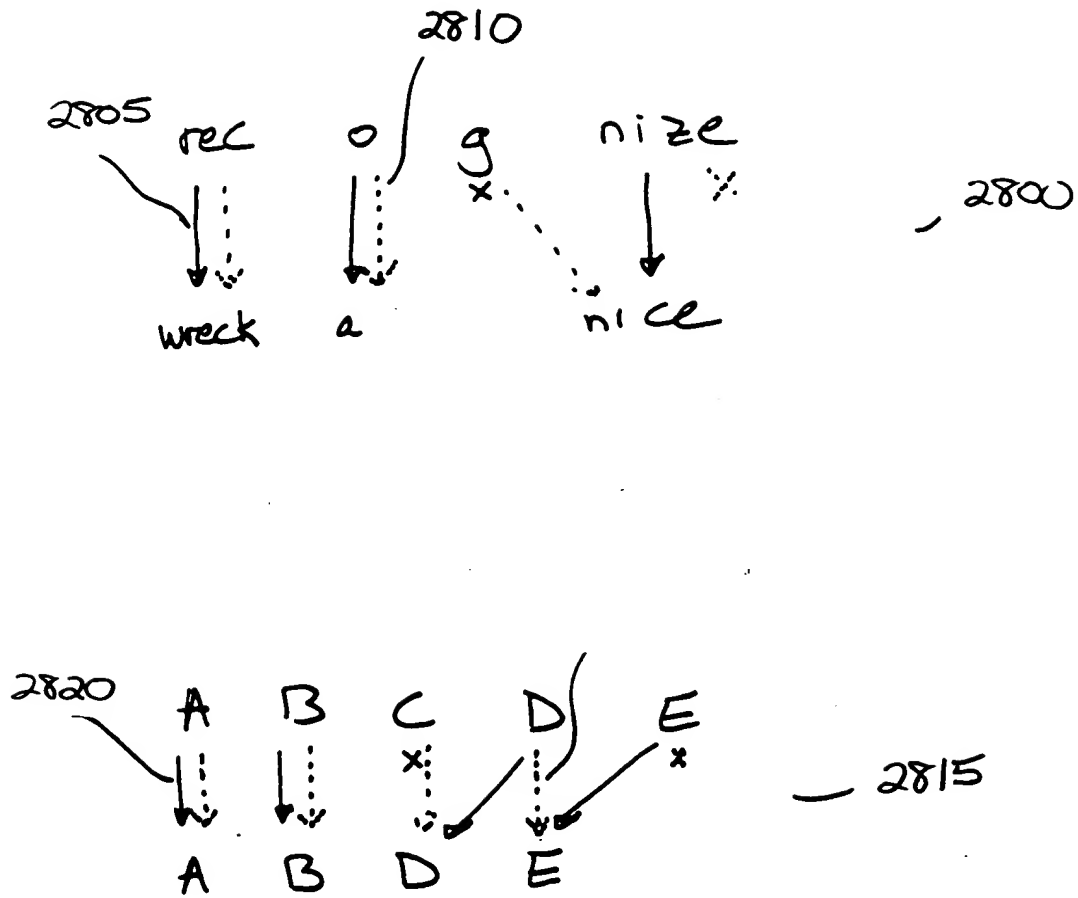 2810
2805 rec o g nize
x x 2800
wreck a nice
2820 A B C D E
x x 2815
A B D E